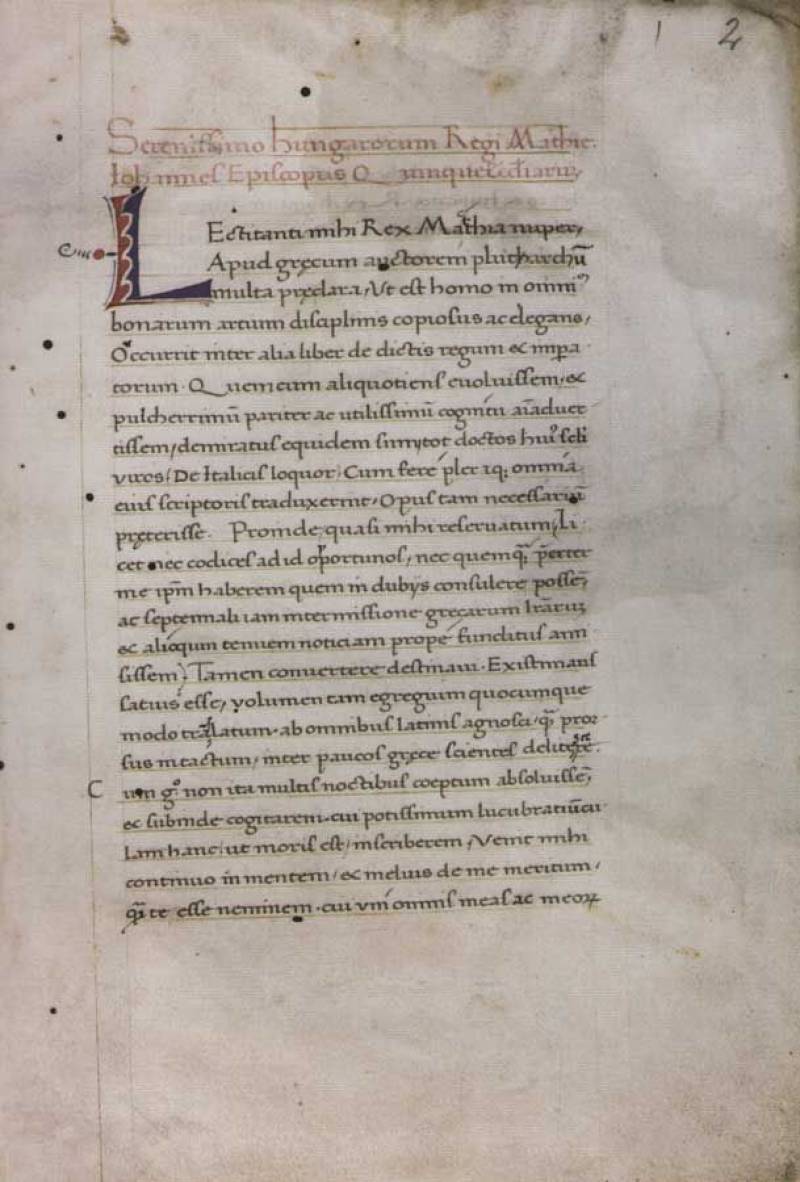 1 2
Serenissimo hungarorum Regi Mathie.
Iohannes Episcopus Quinqueecclesiarum,
LEctitanti mihi Rex Mathia nuper,
Apud gręcum auctorem plutharchū
multa pręclara, Vt est homo in omni
bonarum artium disciplinis copiosus ac elegans,
Occurrit inter alia liber de dictis regum et impa
torum. Quem cum aliquotiens euoluissem, et
pulcherrimū pariter ac utilissimū cognitu aīaduer
tissem, demiratus equidem sum, tot doctos huiꝰ scli
viros, De Italicis loquor, Cum fere pleriq; omnia
eius scriptoris traduxerint, Opus tam necessariū
pręterisse. Proinde, quasi mihi reseruatum, Li
cet nec codices ad id oportunos, nec quemq̄ pręter
me ipm haberem quem in dubijs consulere possē,
ac septennali iam intermissione gręcarum lrārum
et alioqun tenuem noticiam prope funditus ami
sissem, Tamen conuertere destinaui. Existimans
satius esse, volumen tam egregium quocumque
modo traslatum, ab omnibus latinis agnosci, q̄ pror
sus intactum, inter paucos gręce scientes delitescere.
Cum gͦ non ita multis noctibus coeptum absoluissē,
et subinde cogitarem, cui potissimum lucubratiūcu
lam hanc, ut moris est, inscriberem, Venit mihi
continuo in mentem, et melius de me meritum,
q̄ te esse neminem, cui vni omnis meas ac meoꝝ